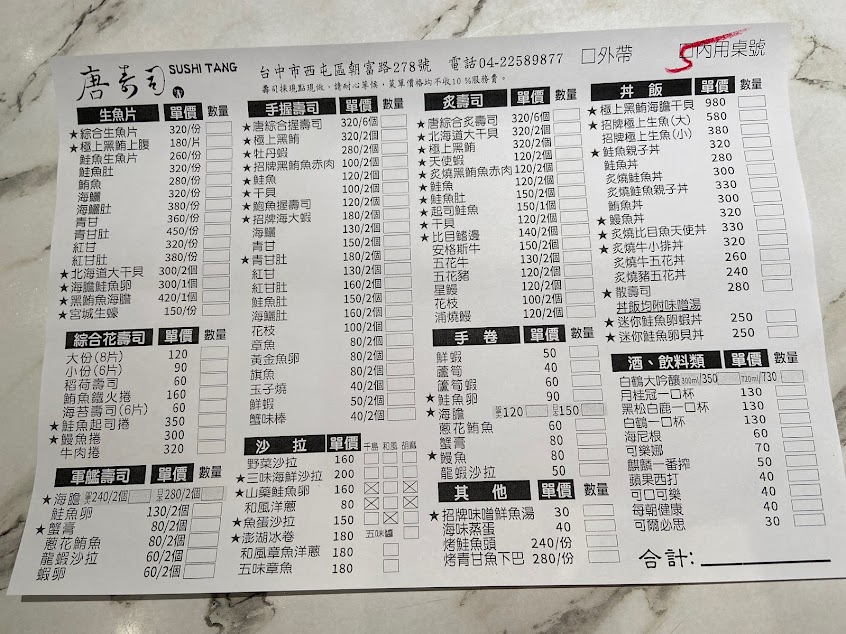 唐壽司 SUSHI TANG
台中市西屯區朝富路278號 電話04-22589877 □外帶 □內用桌號
5
壽司採現點現做,請耐心等候,菜單價格均不收10%服務費。
生魚片 單價 數量
★綜合生魚片 320/份
★極上黑鮪上腹 180/片
鮭魚生魚片 260/份
鮭魚肚 320/份
鮪魚 280/份
海鱺 320/份
海鱺肚 380/份
青甘 360/份
青甘肚 450/份
紅甘 320/份
紅甘肚 380/份
★北海道大干貝 300/2個
★海膽鮭魚卵 300/1個
★黑鮪魚海膽 420/1個
★宮城生蠔 150/份
綜合花壽司 單價 數量
大份(8片) 120
小份(6片) 90
稻荷壽司 60
鮪魚鐵火捲 160
海苔壽司(6片) 60
★鮭魚起司捲 350
★鰻魚捲 300
牛肉捲 320
軍艦壽司 單價 數量
★海膽 240/2個 280/2個
鮭魚卵 130/2個
★蟹膏 80/2個
蔥花鮪魚 80/2個
龍蝦沙拉 60/2個
蝦卵 60/2個
手握壽司 單價 數量
★唐綜合握壽司 320/6個
★極上黑鮪 320/2個
★牡丹蝦 280/2個
★招牌黑鮪魚赤肉 100/2個
★鮭魚 120/2個
★干貝 100/2個
★鮑魚握壽司 120/2個
★招牌海大蝦 180/2個
海鱺 130/2個
青甘 150/2個
★青甘肚 180/2個
紅甘 130/2個
紅甘肚 160/2個
鮭魚肚 150/2個
海鱺肚 160/2個
花枝 100/2個
章魚 80/2個
黃金魚卵 80/2個
旗魚 80/2個
玉子燒 40/2個
鮮蝦 50/2個
蟹味棒 40/2個
沙 拉 單價 千島 和風 胡麻
野菜沙拉 160
★三味海鮮沙拉 200
★山藥鮭魚卵 160
和風洋蔥 80
★魚蛋沙拉 150
★澎湖冰卷 180 五味醬
和風章魚洋蔥 180
五味章魚 180
炙壽司 單價 數量
★唐綜合炙壽司 320/6個
★北海道大干貝 320/2個
★極上黑鮪 320/2個
★天使蝦 120/2個
★炙燒黑鮪魚赤肉 120/2個
★鮭魚 120/2個
★鮭魚肚 150/2個
★起司鮭魚 150/1個
★干貝 120/2個
★比目鰭邊 140/2個
安格斯牛 150/2個
五花牛 130/2個
五花豬 120/2個
星鰻 120/2個
花枝 100/2個
浦燒鰻 120/2個
手 卷 單價 數量
鮮蝦 50
蘆筍 40
蘆筍蝦 60
★鮭魚卵 90
★海膽 120 150
蔥花鮪魚 60
蟹膏 80
★鰻魚 80
龍蝦沙拉 50
其 他 單價 數量
★招牌味噌鮮魚湯 30
海味蒸蛋 40
烤鮭魚頭 240/份
烤青甘魚下巴 280/份
丼 飯 單價 數量
★極上黑鮪海膽干貝 980
★招牌極上生魚(大) 580
招牌極上生魚(小) 380
★鮭魚親子丼 320
鮭魚丼 280
炙燒鮭魚丼 300
炙燒鮭魚親子丼 330
鮪魚丼 300
★鰻魚丼 320
★炙燒比目魚天使丼 320
★炙燒牛小排丼 320
炙燒牛五花丼 260
炙燒豬五花丼 240
★散壽司 280
丼飯均附味噌湯
★迷你鮭魚卵蝦丼 250
★迷你鮭魚卵貝丼 250
酒、飲料類 單價 數量
白鶴大吟釀 300ml/350 720ml/730
月桂冠一口杯 130
黑松白鹿一口杯 130
白鶴一口杯 130
海尼根 60
可樂娜 70
麒麟一番搾 50
蘋果西打 40
可口可樂 40
每朝健康 40
可爾必思 30
合計: